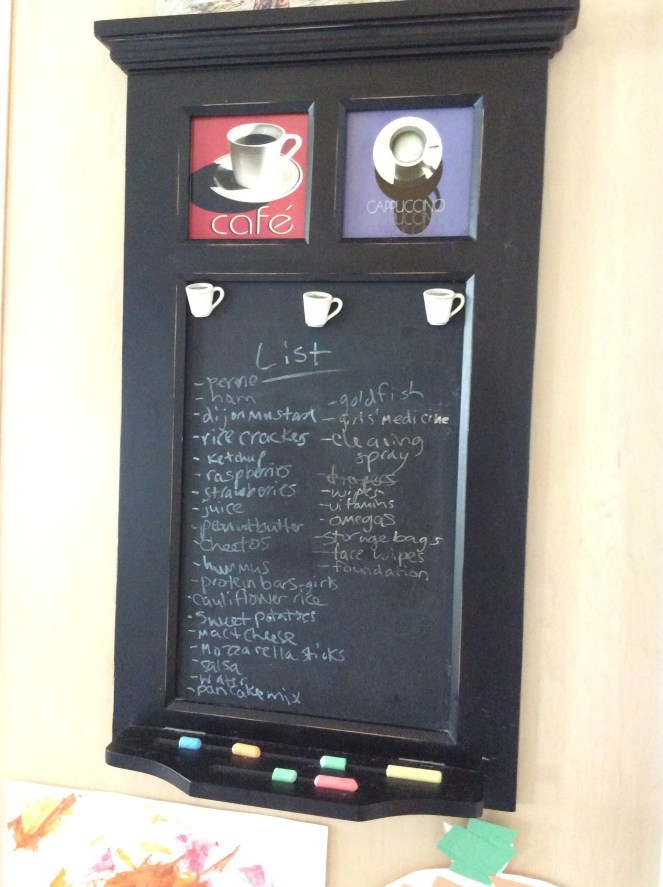 café
CAPPUCCINO
List
- penne
- ham
- dijon mustard
- rice crackers
- ketchup
- raspberries
- strawberries
- juice
- peanut butter
- cheetos
- hummus
- protein bars-girls
- cauliflower rice
- sweet potatoes
- mac+cheese
- mozzarella sticks
- salsa
- water
- pancake mix
- goldfish
- girls' medicine
- cleaning
spray
- diapers
- wipes
- vitamins
- omegas
- storage bags
- face wipes
- foundation